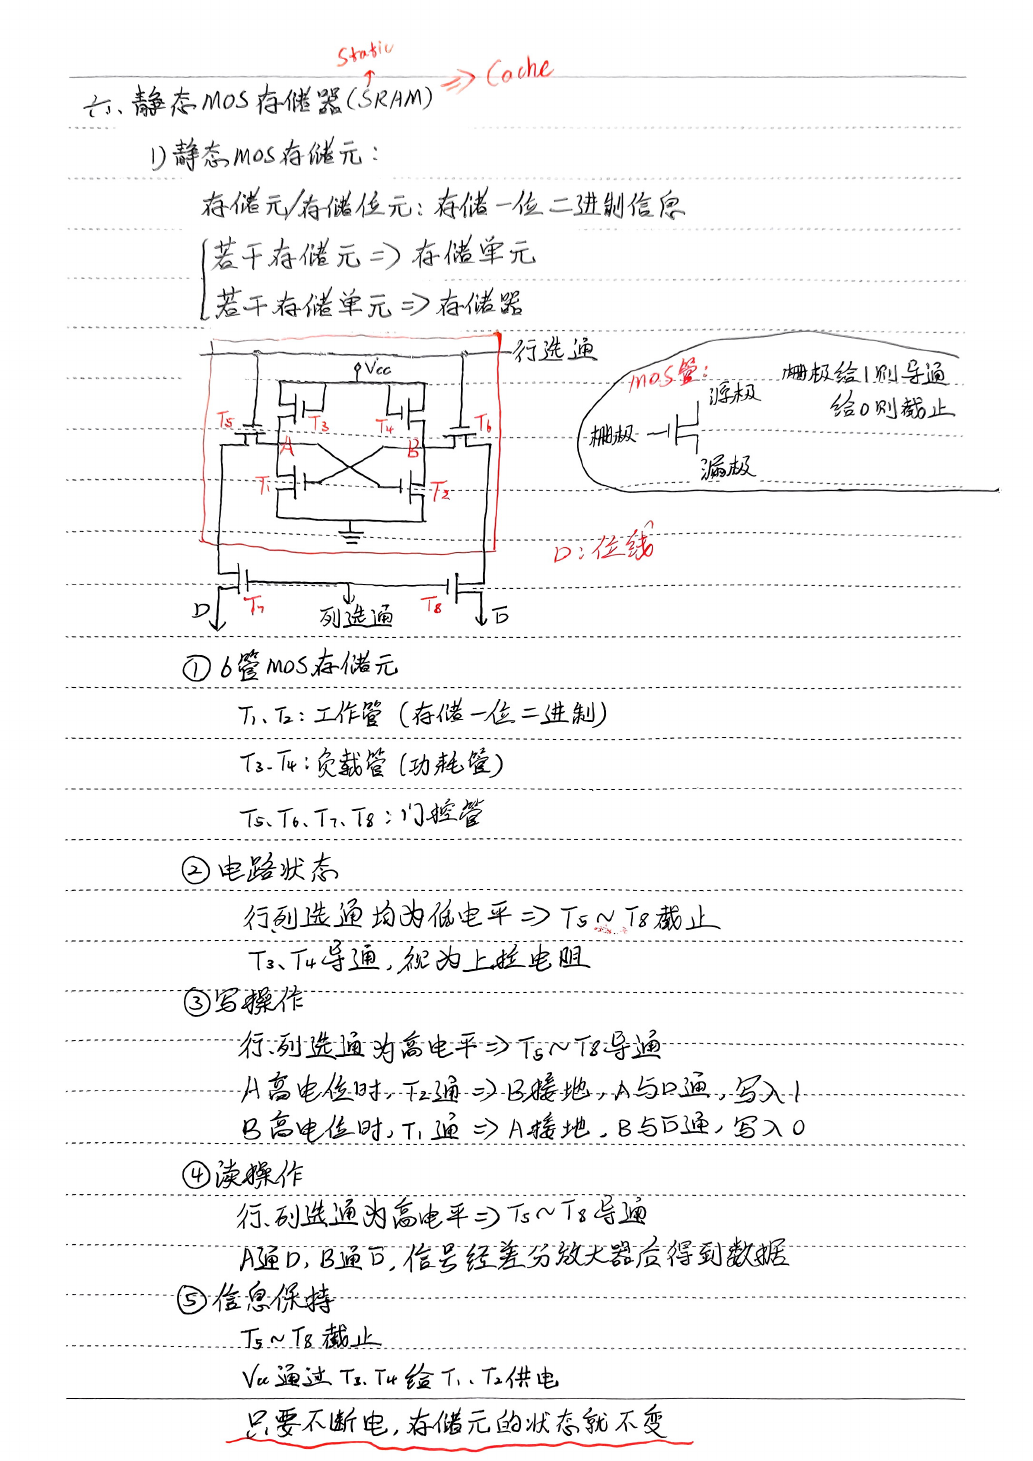 Static
六、静态MOS存储器(SRAM) => Cache
1)静态MOS存储元：
存储元/存储位元：存储一位二进制信息
若干存储元=>存储单元
若干存储单元=>存储器
行选通
Vcc
T5 T3 T4 T6
A B
T1 T2
T7 T8
D 列选通 D̅
MOS管：
栅极给1则导通
给0则截止
源极
栅极
漏极
D：位线
① 6管MOS存储元
T1、T2：工作管（存储一位二进制）
T3、T4：负载管（功耗管）
T5、T6、T7、T8：门控管
② 电路状态
行列选通均为低电平=>T5~T8截止
T3、T4导通，视为上拉电阻
③ 写操作
行、列选通为高电平=>T5~T8导通
A高电位时，T2通=>B接地，A与D通，写入1
B高电位时，T1通=>A接地，B与D̅通，写入0
④ 读操作
行、列选通为高电平=>T5~T8导通
A通D，B通D̅，信号经差分放大器后得到数据
⑤ 信息保持
T5~T8截止
Vcc通过T3、T4给T1、T2供电
只要不断电，存储元的状态就不变